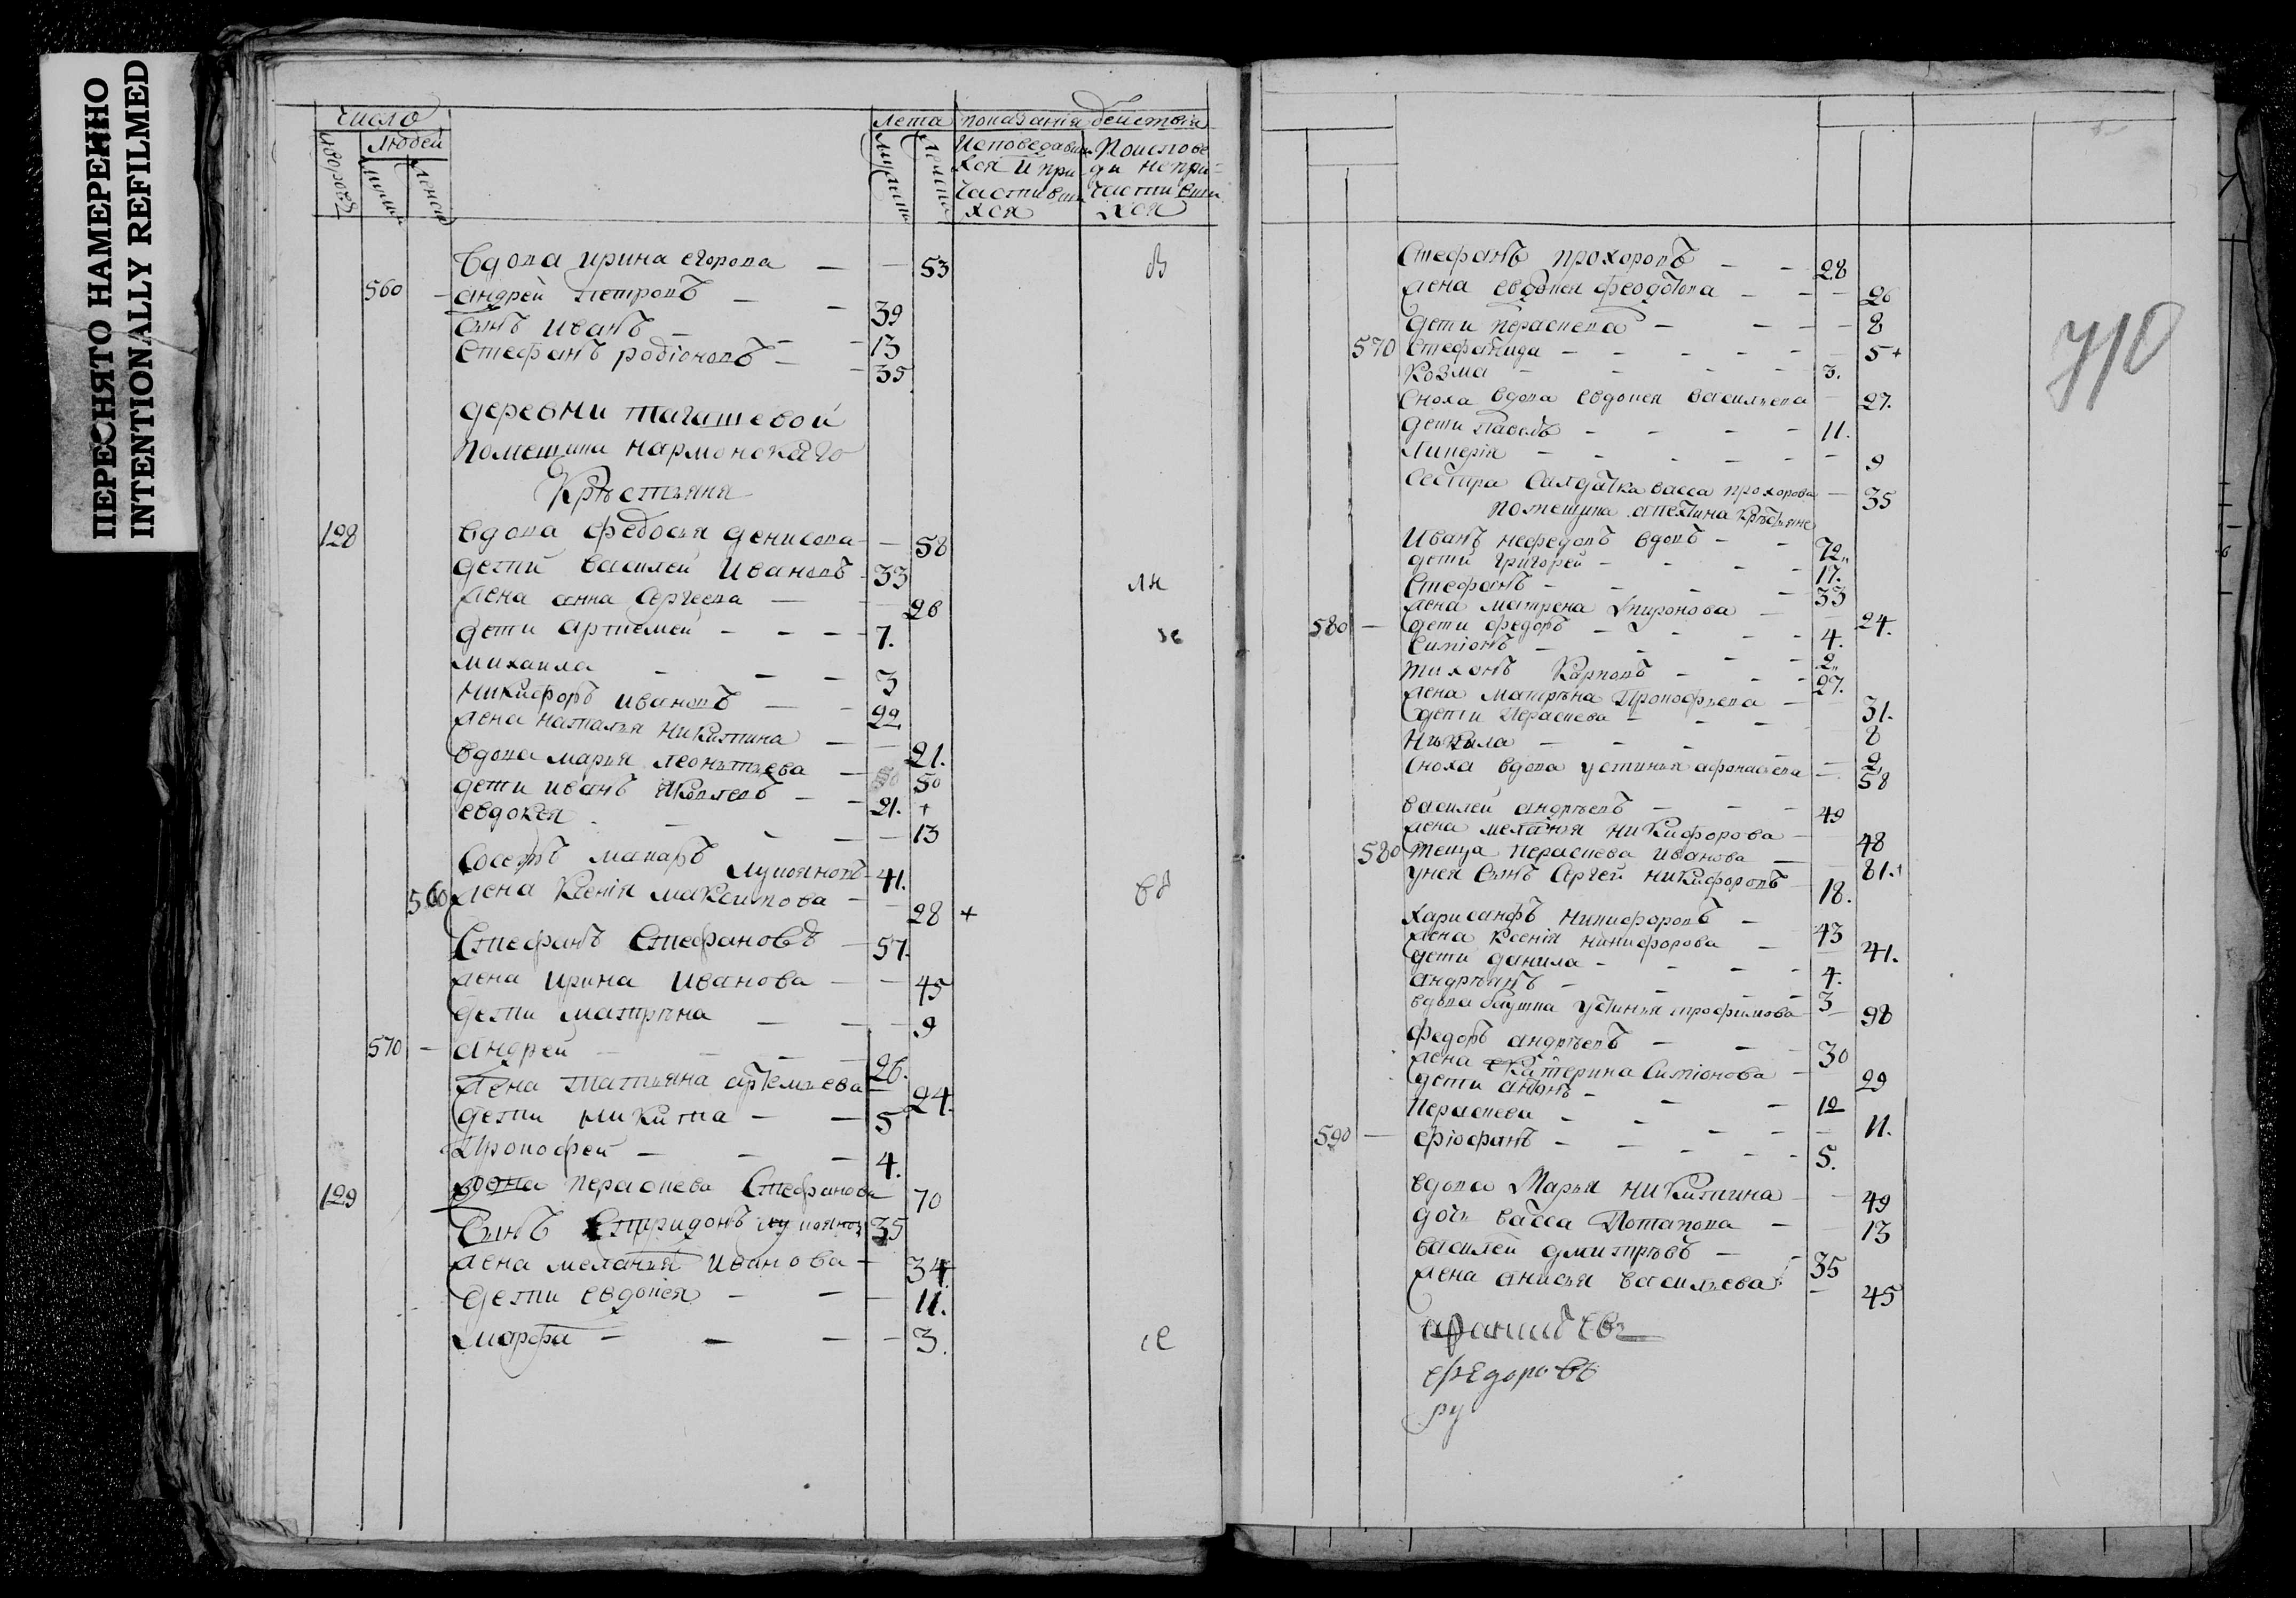 ПЕРЕСНЯТО НАМЕРЕННО
INTENTIONALLY REFILMED
число
Людей
лета показанія действія
Исповедавши
хся и при
частивши
хся
Поиспове
ди непри=
частивши
хся
вдова ирина егорова — — 53
560 — андрей петровъ — — 39
сынъ иванъ — — 13
стефанъ родіоновъ — — 35
деревни тагашевой
помещика нармонскаго
Крѣстьяня
128 вдова федосья денисова — 58
дети василей Ивановъ 33
жена анна сергеева — — 26
дети артемей — — — 7.
михаила — — — 3
никифоръ ивановъ — — 22
жена наталья никитина — — 21.
вдова марья леонтьева — 50
дети иванъ — — 21. +
евдокея — — — 13
макаръ лукояновъ 41.
560 жена Ксенія максимова — — 28 +
Стефанъ Стефановъ — 57.
жена ирина иванова — — 45
дети матрена — — — 9
570 — андрей — — — 26.
жена татьяна артемьева — 24.
дети никита — — 5
Прокофей — — — 4.
129 вдова параскева Стефанова 70
Сынъ Спиридонъ лукоянов 35
жена меланья иванова — 34.
дети евдокея — — — 11.
марфа — — — — 3.
Стефанъ прохоровъ — — 28
жена евдокея феодотова — — — 26
дети параскева — — — — 8
570 Стефанида — — — — — 5 +
Козма — — — 3.
Сноха вдова евдокея васильева — 27.
дети павелъ — — — — 11.
Ликерія — — — — — 9
Сестра Салдатка васса прохорова — 35
помещика
Иванъ нефедовъ вдовъ — — 72.
дети григорей — — — 17.
Стефанъ — — — — 33
жена матрена миронова — 24.
580 — дети федоръ — — — 4.
Симіонъ — — — — 2.
тихонъ Карповъ — — — 27.
жена матрѣна Прокофьева — 31.
дети Параскева — — — 8
— — — — — 2,
Сноха вдова устинья афонасьева — 58
василей андрѣевъ — — — 49
жена меланья никифорова — — 48
580 теща параскева иванова — — 81. +
унея сынъ Сергей никифоровъ 18.
харисанфъ никифоровъ — 43
жена Ксенія никифорова — — 41.
дети данила — — — 4.
андрѣанъ — — — — 3
вдова устинья трофимова — 98
федоръ андрѣевъ — — — 30
жена екатерина Симіонова — 29
дети антонъ — — — 12
Параскева — — — — — 11.
590 — — — — — — 5.
вдова Марья никитина — — 49
дочь васса Потапова — — 13
василей дмитрѣевъ — — 35
жена анисья васильева — 45
федоровъ
ру
710